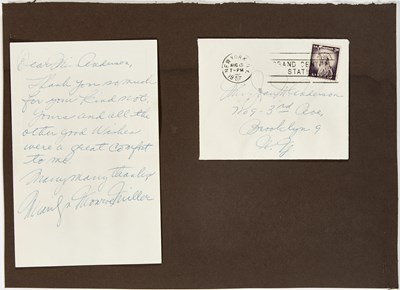 Dear Mr. Anderson,
Thank you so much
for your kind note.
Yours and all the
other good wishes
were a great comfort
to me
Many many thanks
Marilyn Monroe Miller
NEW YORK, N.Y.
AUG
1-PM
1957
GRAND CENTRAL
STATION
Henderson
3rd Ave
Brooklyn 9
N.Y.